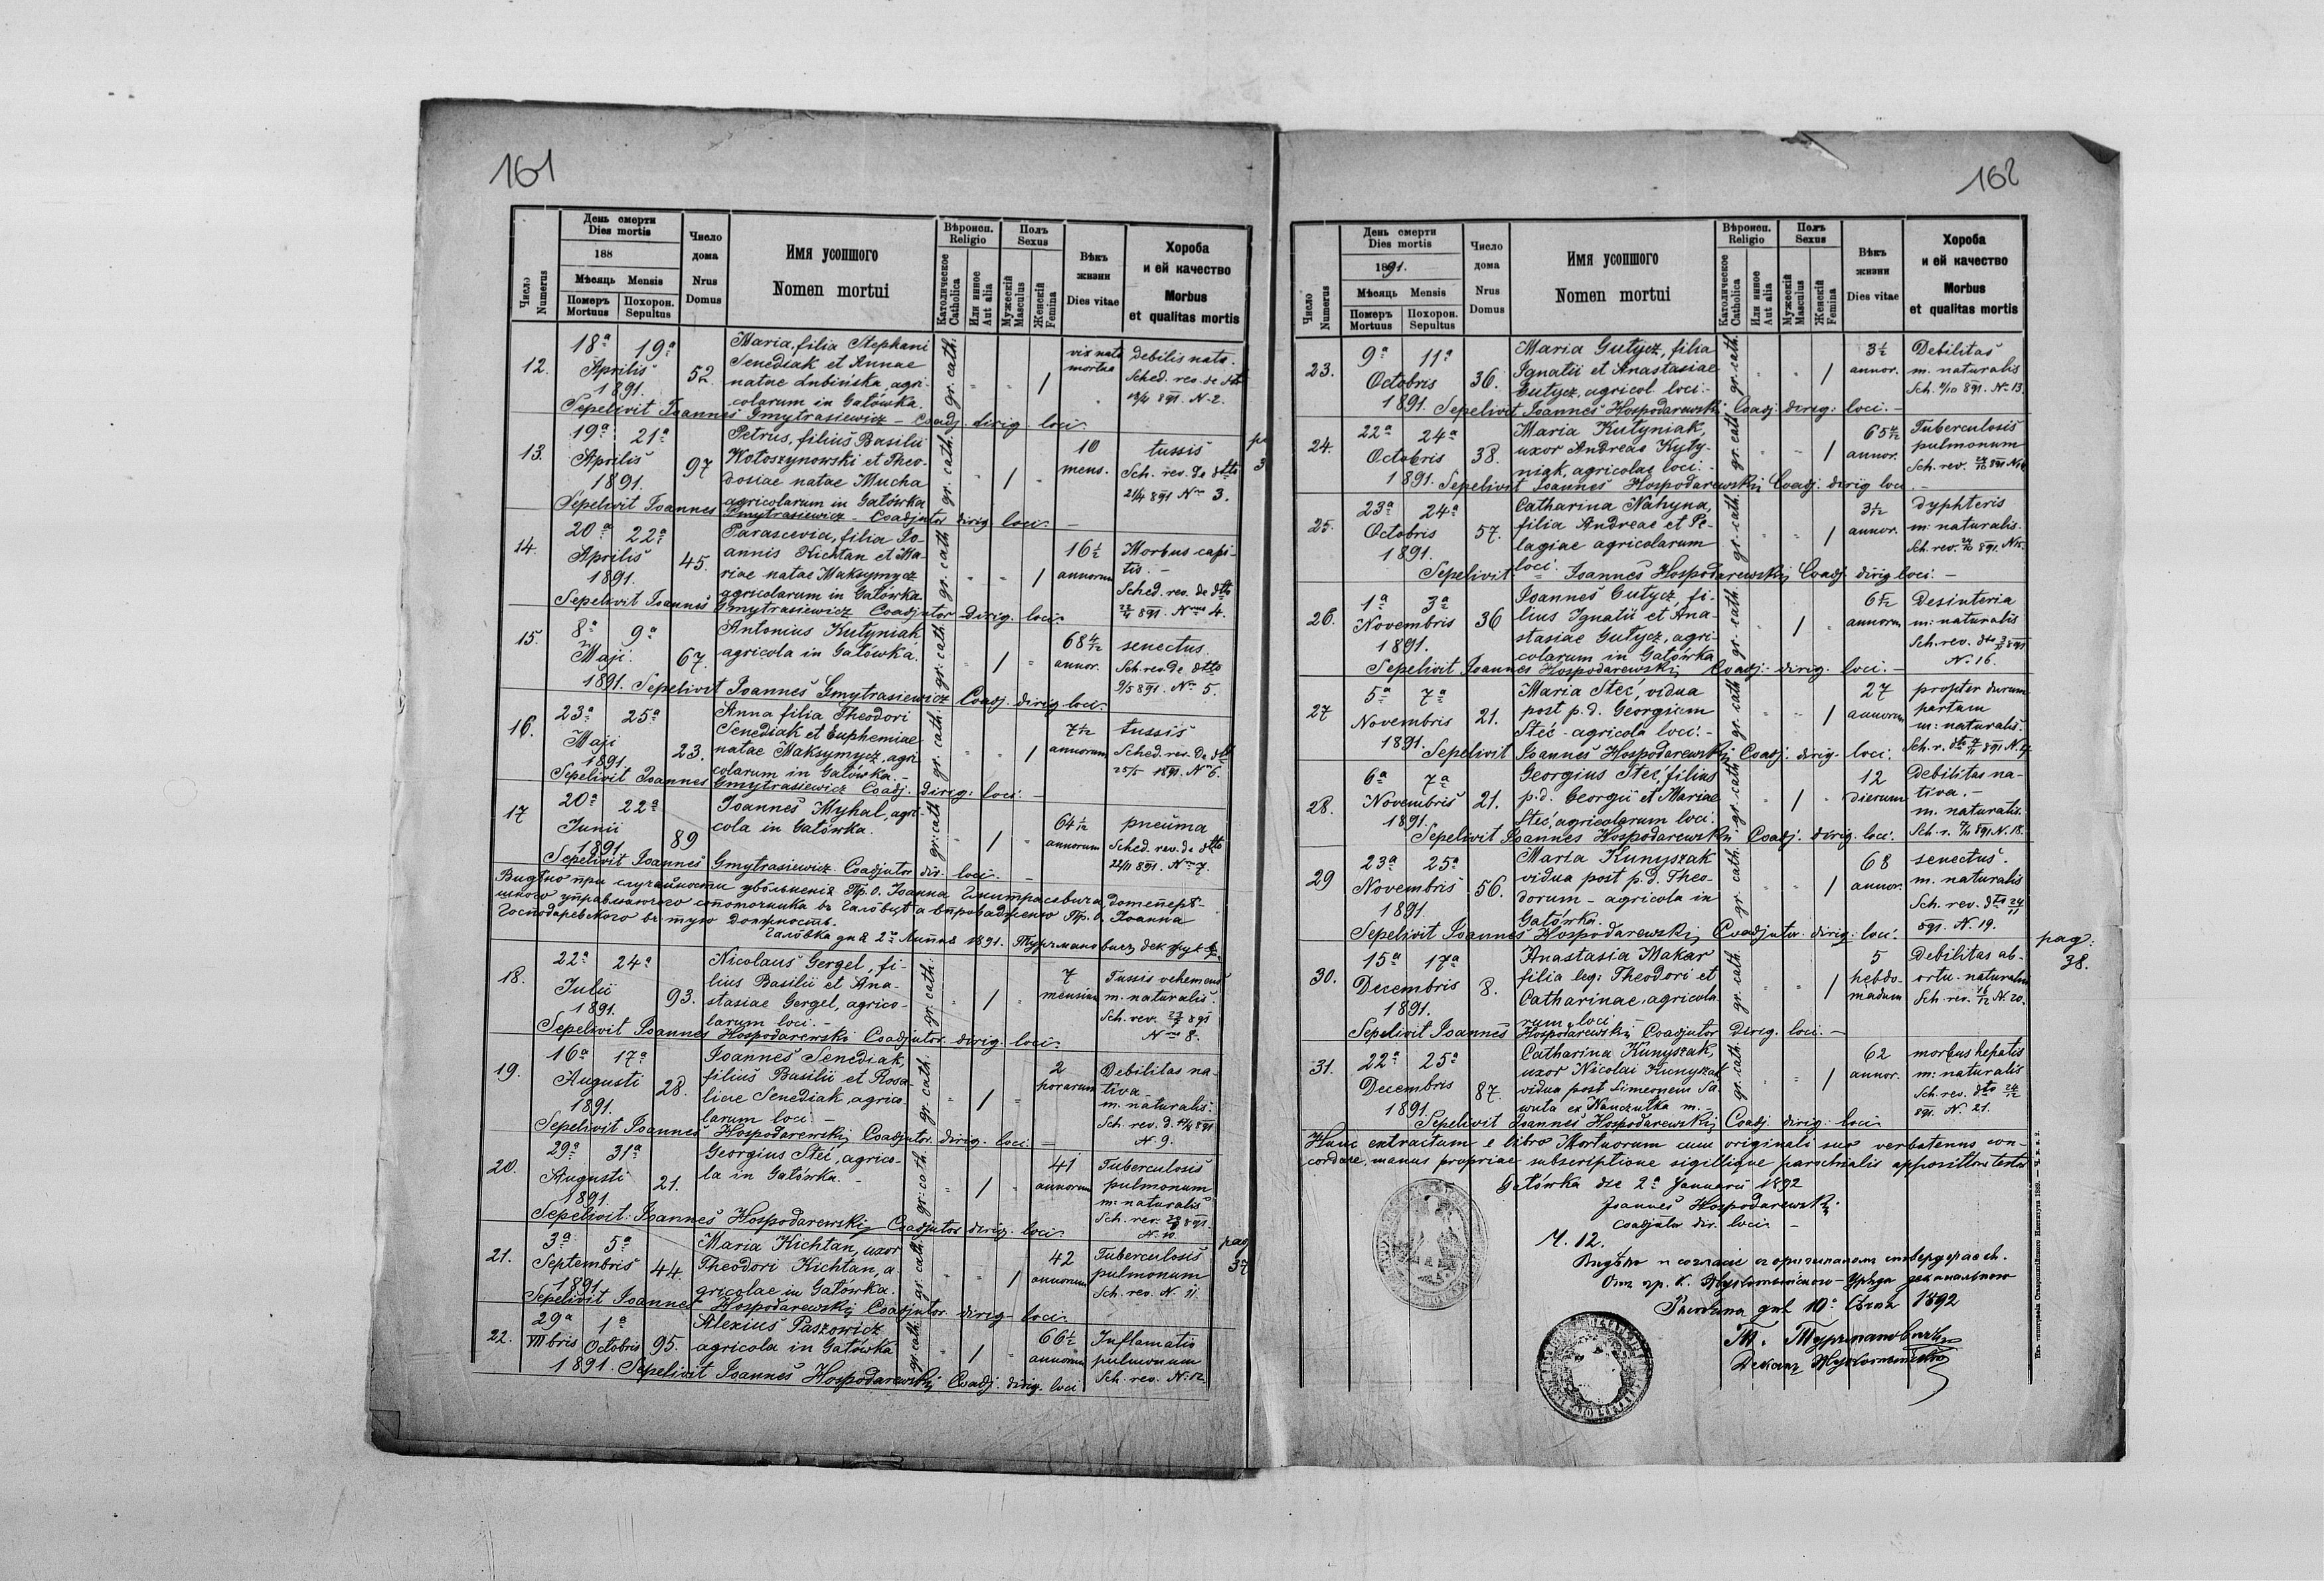 161
День смерти
Dies mortis
188
Мѣсяць Mensis
Померъ Mortuus
Похорон. Sepultus
Число Numerus
Число дома
Nrus Domus
Имя усопшого
Nomen mortui
Вѣроисп. Religio
Католическое Catholica
Или инное Aut alia
Полъ Sexus
Мужескій Masculus
Женскій Femina
Вѣкъ жизни
Dies vitae
Хороба и ей качество
Morbus et qualitas mortis
12. 18a 19a Aprilis 1891. 52. Maria, filia Stephani
Senediak et Annae
natae Lubińska, agri-
colarum in Gatówka.
gr. cath. 1 vix nata mortua
Debilis nata.
Sched. rev. de dtto
891. N. 2.
Sepelivit Joannes Gmytrasiewicz – Coadj. dirig. loci.
13. 19a 21a Aprilis 1891. 97 Petrus, filius Basilii
Hołoszynowski et Theo-
dosiae natae Mucha
agricolarum in Gatówka
gr. cath. 1 10 mens.
tussis
Sch. rev. de dtto
21/4 891 Nro 3.
Sepelivit Joannes Gmytrasiewicz – Coadjutor dirig. loci. –
14. 20a 22a Aprilis 1891. 45. Parascevia, filia Jo-
annis Kichtan et Ma-
riae natae Maksymycz
agricolarum in Gatówka
gr. cath. 1 16 1/2 annorum
Morbus capi-
tis. –
Sched. rev. de dtto
891. 4.
Sepelivit Joannes Gmytrasiewicz Coadjutor dirig. loci.
15. 8a 9a Maji 1891. 67. Antonius Kutyniak
agricola in Gatówka.
gr. cath. 1 68 annor.
senectus.
Sch. rev. de dtto
9/5 891. Nro 5.
Sepelivit Joannes Gmytrasiewicz Coadj. dirig. loci.
16. 23a 25a Maji 1891. 23. Anna filia Theodori
Senediak et Euphemiae
natae Maksymycz, agri-
colarum in Gatówka. –
gr. cath. 1 annorum
tussis
Sched. rev. de dtto
25/5 1891. Nro 6.
Sepelivit Joannes Gmytrasiewicz Coadj. dirig. loci. –
17 20a 22a Junii 1891. 89 Joannes Myhal, agri-
cola in Gatówka.
gr. cath. 1 64 annorum
pneuma
Sched. rev. de dtto
891. Nro 7.
Sepelivit Joannes Gmytrasiewicz Coadjutor dir. loci. –
Видѣно при случайности увольненія Пр. О. Іоанна Гмитрасевича дотепер-
шного управляючого сопоточника въ и впроваджено Пр. О. Іоанна
Господаревского въ тую должность.
дня 2 1891.
18. 22a 24a Julii 1891. 93. Nicolaus Gergel, fi-
lius Basilii et Ana-
stasiae Gergel, agrico-
larum loci. –
gr. cath. 1 7 mensium
Tussis vehemens
m. naturalis.
Sch. rev. 891
Nro 8.
Sepelivit Joannes Hospodarewski Coadjutor dirig. loci.
19. 16a 17a Augusti 1891. 28. Joannes Senediak,
filius Basilii et Rosa-
liae Senediak, agrico-
larum loci.
gr. cath. 1 2 horarum
Debilitas na-
tiva –
m. naturalis.
Sch. rev. d. 891
N. 9.
Sepelivit Joannes Hospodarewskij Coadjutor dirig. loci. –
20. 29a 31a Augusti 1891. 21. Georgius Steć, agrico-
la in Gatówka. –
gr. cath. 1 41 annorum
Tuberculosis
pulmonum
m. naturalis
Sch. rev. 891.
N. 10.
Sepelivit Joannes Hospodarewskij Coadjutor dirig. loci.
pag 37
21. 3a 5a Septembris 1891. 44. Maria Kichtan, uxor
Theodori Kichtan, a-
gricolae in Gatówka.
gr. cath. 1 42 annorum
Tuberculosis
pulmonum
Sch. rev. N. 11.
Sepelivit Joannes Hospodarewskij Coadjutor dirig. loci.
22. 29a VIIbris 1a Octobris 1891. 95. Alexius Paszowicz
agricola in Gatówka
gr. cath. 1 66 1/2 annorum
Inflamatio
pulmonum
Sch. rev. N. 12
Sepelivit Joannes Hospodarewskij Coadj. dirig. loci
162
День смерти
Dies mortis
1891.
Мѣсяць Mensis
Померъ Mortuus
Похорон. Sepultus
Число Numerus
Число дома
Nrus Domus
Имя усопшого
Nomen mortui
Вѣроисп. Religio
Католическое Catholica
Или инное Aut alia
Полъ Sexus
Мужескій Masculus
Женскій Femina
Вѣкъ жизни
Dies vitae
Хороба и ей качество
Morbus et qualitas mortis
23. 9a 11a Octobris 1891. 36. Maria Gutycz, filia
Ignatii et Anastasiae
Gutycz, agricol. loci. –
gr. cath. 1 3 1/2 annor.
Debilitas
m. naturalis
Sch. 891. No 13.
Sepelivit Joannes Hospodarewskij Coadj. dirig. loci. –
24. 22a 24a Octobris 1891. 38. Maria Kutyniak,
uxor Andreae Kuty-
niak, agricolae loci. –
gr. cath. 1 65 annor.
Tuberculosis
pulmonum
Sch. rev. 891
Sepelivit Joannes Hospodarewskij Coadj. dirig. loci –
25. 23a 24a Octobris 1891. 57. Catharina Nahyna,
filia Andreae et Pe-
lagiae agricolarum
loci.
gr. cath. 1 annor.
dyphteris
m. naturalis.
Sch. rev. 891. N 15.
Sepelivit Joannes Hospodarewskij Coadj. dirig. loci. –
26. 1a 3a Novembris 1891. 36 Joannes Gutycz, fi-
lius Ignatii et Ana-
stasiae Gutycz, agri-
colarum in Gatówka
gr. cath. 1 annorum
Desinteria
m. naturalis
Sch. rev. dto 891
N. 16.
Sepelivit Joannes Hospodarewskij Coadj. dirig. loci. –
27 5a 7a Novembris 1891. 21. Maria Steć, vidua
post p. d. Georgium
Steć – agricola loci. –
gr. cath. 1 27 annorum
propter durum
partum
m. naturalis.
Sch. r. dto 891 N. 17.
Sepelivit Joannes Hospodarewskij Coadj. dirig. loci.
28. 6a 7a Novembris 1891. 21. Georgius Steć, filius
p. d. Georgii et Mariae
Steć, agricolarum loci.
gr. cath. 1 12 dierum
Debilitas na-
tiva. –
m. naturalis.
Sch. r. 891 N. 18.
Sepelivit Joannes Hospodarewskij Coadj. dirig. loci.
29 23a 25a Novembris 1891. 56. Maria Kunyszak
vidua post p. d. Theo-
dorum – agricola in
Gatówka.
gr. cath. 1 68 annor.
senectus.
m. naturalis
Sch. rev. dto 24/11
891. N. 19.
Sepelivit Joannes Hospodarewskij Coadjutor dirig. loci.
pag: 38.
30. 15a 17a Decembris 1891. 8. Anastasia Makar
filia leg. Theodori et
Catharinae, agricola-
rum loci
gr. cath. 1 5 hebdo-madum
Debilitas ab-
ortu. naturalis
Sch. rev. 16/12 N. 20.
Sepelivit Joannes Hospodarewskij Coadjutor dirig. loci. –
31. 22a 25a Decembris 1891. 87. Catharina Kunyszak,
uxor Nicolai Kunyszak
vidua post Simeonem
gr. cath. 1 62 annor.
morbus hepatis
m. naturalis
Sch. rev. dto 24/12
891. N. 21.
Sepelivit Joannes Hospodarewskij Coadj. dirig. loci
Hunc extractum e libro Mortuorum cum originali suo verbotenus con-
cordare, manus propriae subscriptione sigillique parochialis appositione testor
Gatówka die 2a Januarii 1892
Joannes Hospodarewskij
Coadjutor dir. loci. –
Ч. 12.
Видѣно и согласіе съ оригиналом
дня 10 1892
Изъ типографіи Ставропигійского Института 1889. – Ч. к. з.